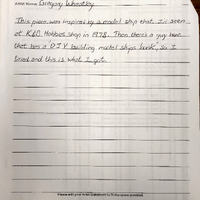 Artist Name Gregory Wheatley
This piece was inspired by a model ship that I'd seen
at K&O Hobbies shop in 1978. Then there's a guy here
that has a DIY building model ships book, so I
tried and this is what I got.
Please add your Artist Statement to fit the space provided.